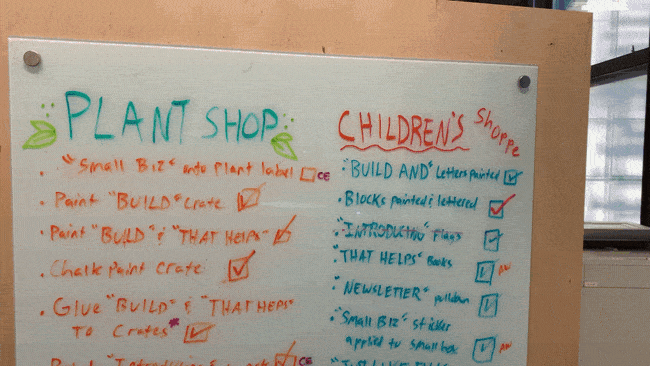 PLANT SHOP
• "Small Biz" onto plant label CE
• Paint "BUILD" crate
• Paint "BUILD" & "THAT HELPS"
• Chalk Paint crate
• Glue "BUILD" & "THAT HEPS"
TO Crates*
CE
CHILDREN'S Shoppe
• "BUILD AND" Letters painted
• Blocks painted & lettered
• "INTRODUCING" Flags
• "THAT HELPS" Books
• "NEWSLETTER" pulldown
• "Small Biz" sticker
applied to small box